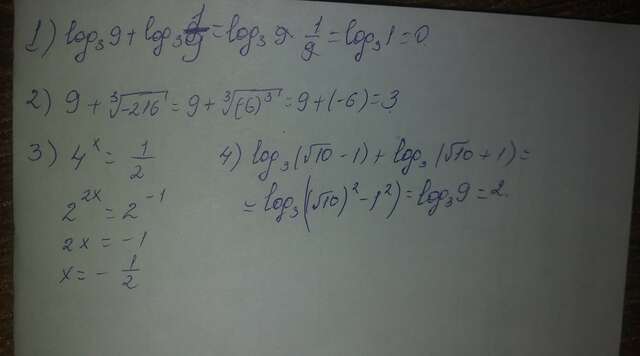 1) log₃9 + log₃ 1/9 = log₃ 9 · 1/9 = log₃1 = 0.
2) 9 + ∛-216 = 9 + ∛(-6)³ = 9 + (-6) = 3
3) 4ˣ = 1/2
2²ˣ = 2⁻¹
2x = -1
x = - 1/2
4) log₃(√10 - 1) + log₃(√10 + 1) =
= log₃((√10)² - 1²) = log₃9 = 2.